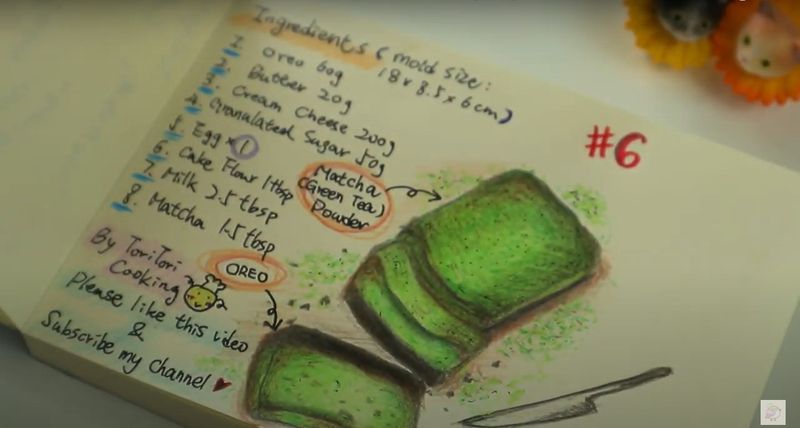 Ingredients ( mold size:
18 x 8.5 x 6 cm)
1. Oreo 60g
2. Butter 20g
3. Cream Cheese 200g
4. Granalated Sugar 50g
5. Egg x 1
6. Cake Flour 1 tbsp
7. Milk 2.5 tbsp
8. Matcha 1.5 tbsp
By ToriTori
Cooking
Please like this video
&
Subscribe my Channel ♥
#6
Matcha
(Green Tea)
Powder
OREO